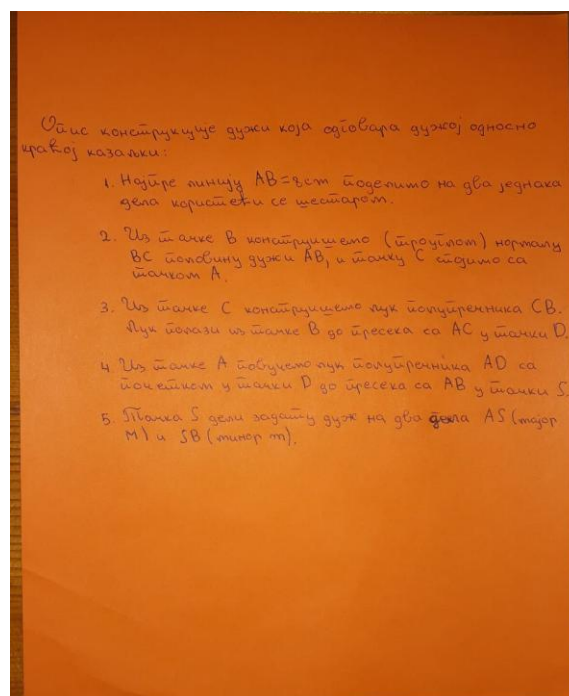 Опис конструкције дужи која одговара дужој односно
краћој казаљки:
1. Најпре линију AB=8cm поделимо на два једнака
дела користећи се шестаром.
2. Из тачке B конструишемо (троуглом) нормалу
BC половину дужи AB, и тачку C спојимо са
тачком A.
3. Из тачке C конструишемо лук полупречника CB.
Лук полази из тачке B до пресека са AC у тачки D.
4. Из тачке A повучемо лук полупречника AD са
почетком у тачки D до пресека са AB у тачки S.
5. Тачка S дели задату дуж на два дела AS (мајор
M) и SB (минор m).